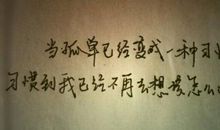 当孤单已经变成一种习惯
习惯到我已经不再去想该怎么